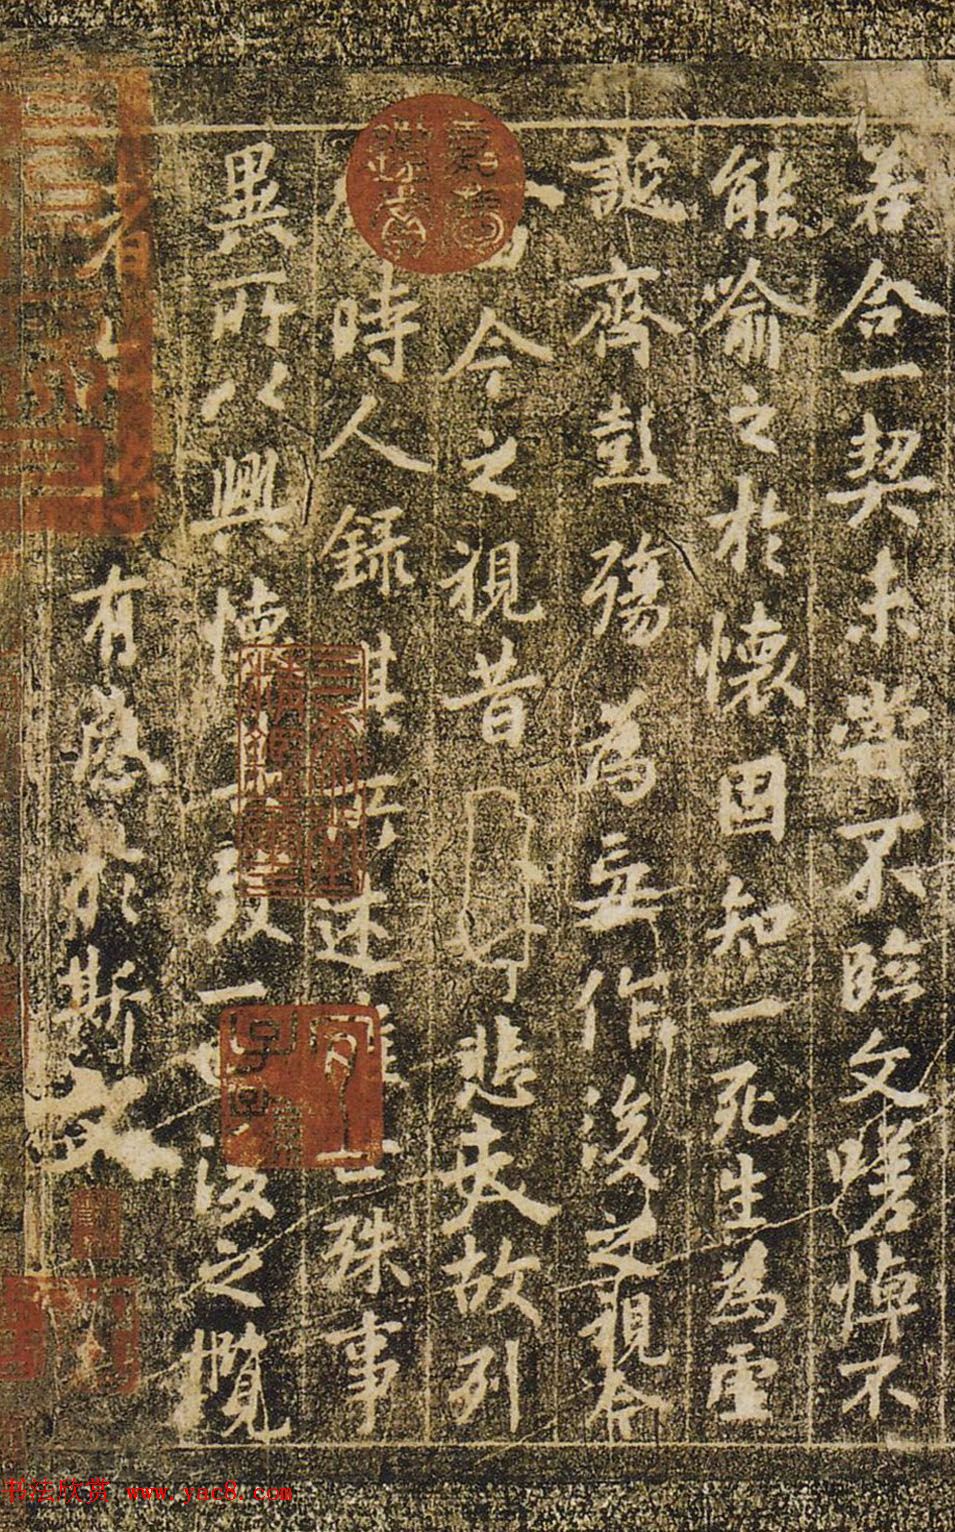 若合一契未嘗不臨文嗟悼不
能喻之於懷固知一死生為虛
誕齊彭殤為妄作後之視今
今之視昔悲夫故列
時人錄其所述殊事
異所以興懷致一也後之攬
者有感於斯文
书法欣赏 www.yac8.com